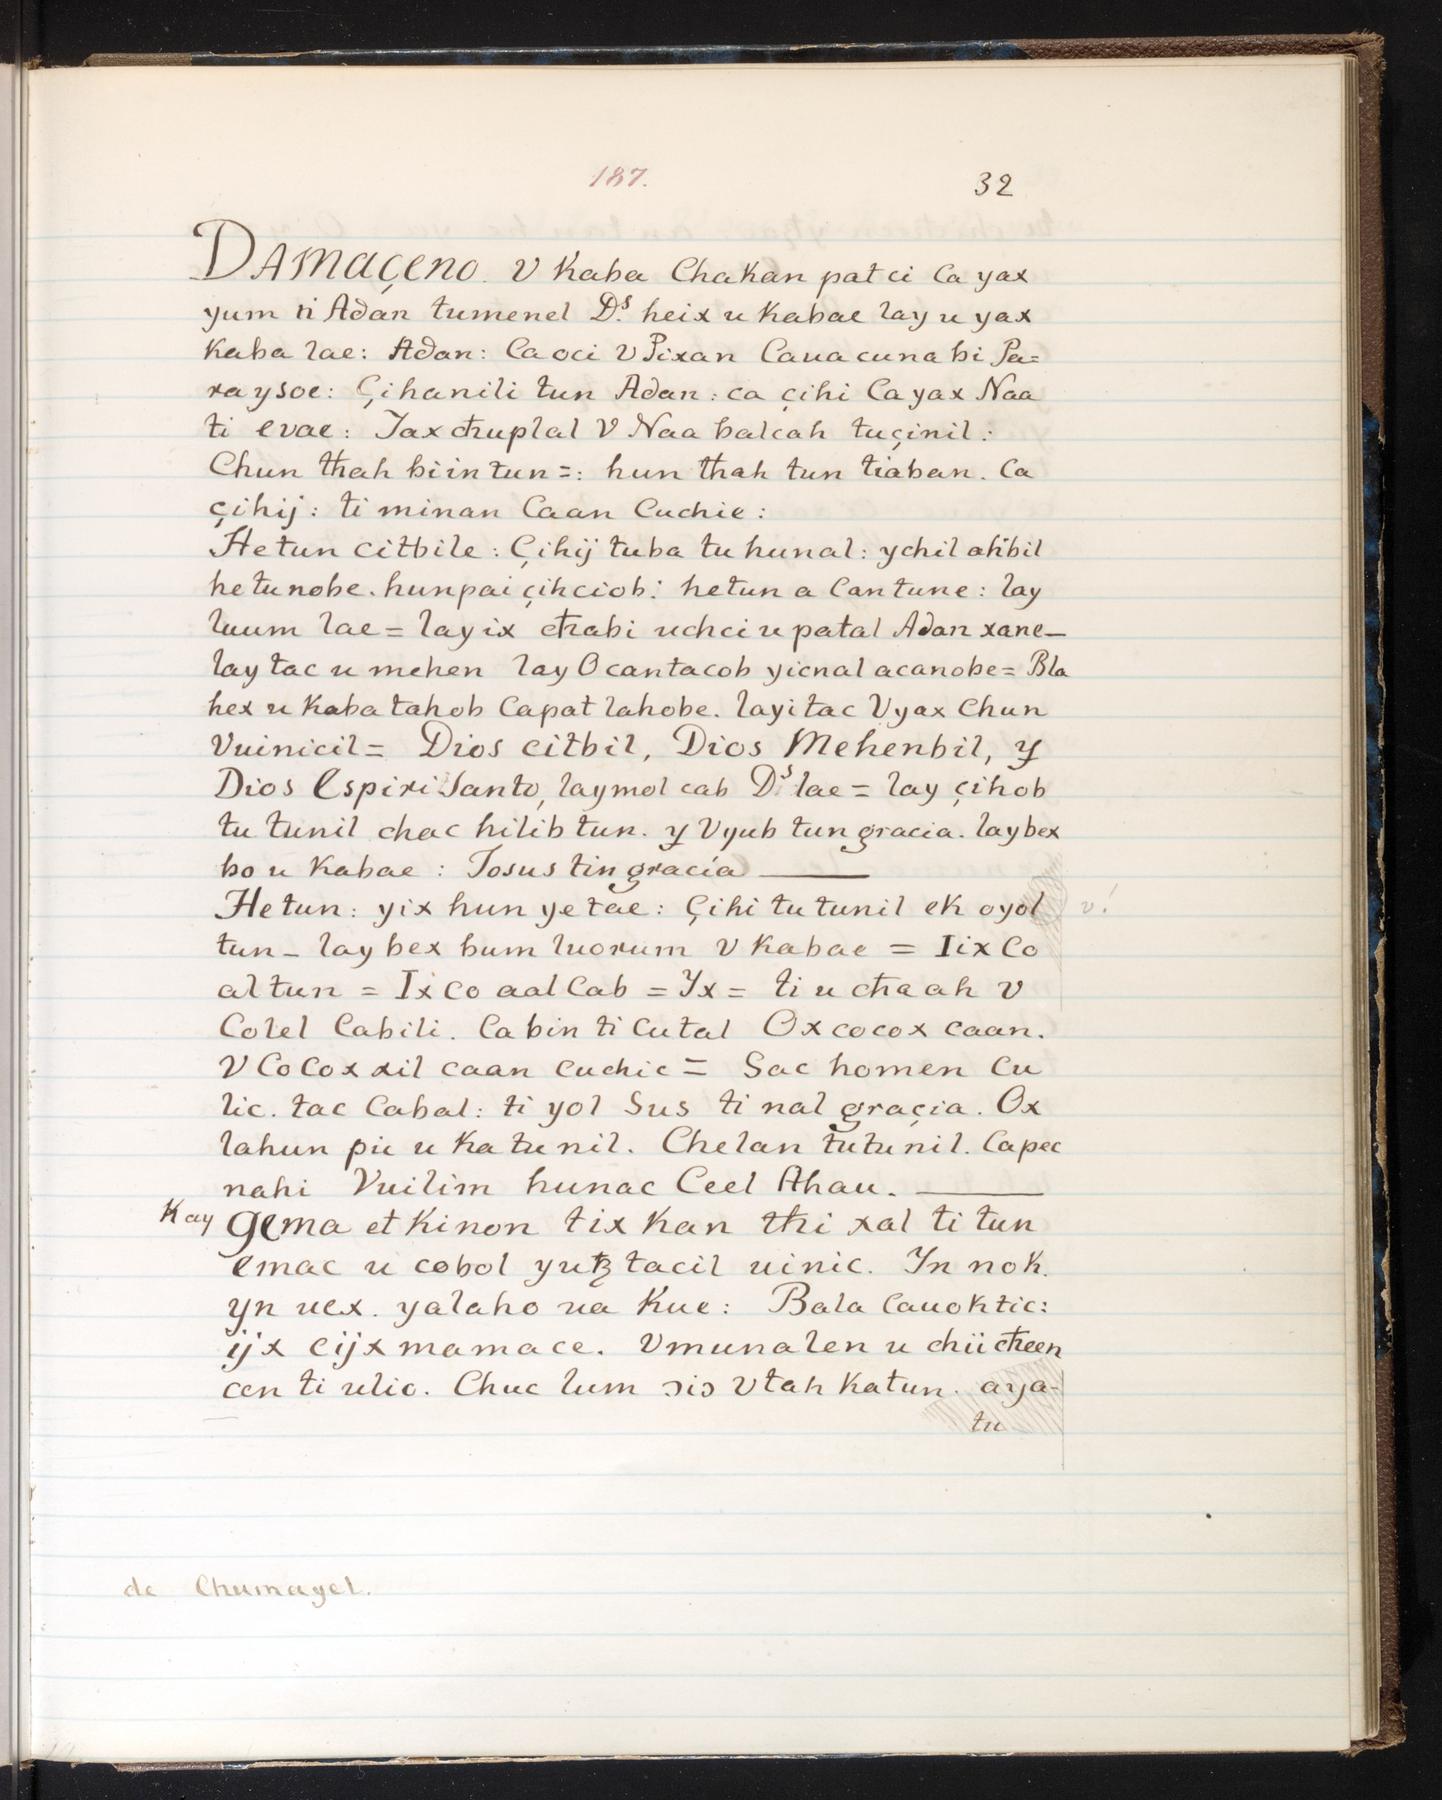 187.
32
DAMAÇENO. V Kaba Chakan pat ci Ca yax
yum ti Adan tumenel D.s heix u Kabae lay u yax
Kaba lae: Adan: Ca oci V Pixan Cauacunabi Pa=
raysoe: Çihanili tun Adan: ca çihi Ca yax Naa
ti evae: Yax chuplal V Naa balcah tuçinil:
Chun thah biin tun =: hun thah tun tiaban. Ca
çihij: ti minan Caan Cuchie:
He tun citbile: Çihij tuba tu hunal: ychil akbil
he tunobe. hunpai çihciob: hetun a Can tune: lay
luum lae = lay ix chabi uchci u patal Adan xane_
lay tac u mehen lay Ocantacob yicnal acanobe = Bla
hex u Kaba tahob Capat lahobe. layitac V yax Chun
Vuinicil = Dios citbil, Dios Mehenbil, y
Dios Espiri Santo, laymol cab D.s lae = lay çihob
tu tunil chac hilib tun. y Vyub tun gracia. lay bex
bo u Kabae: Josus tin gracia ———
He tun: yix hun ye tae: Çihi tu tunil ek oyol v!
tun _ lay bex bum luorum V Kabae = Iix Co
al tun = Ix co aal Cab = Yx = ti u chaah V
Colel Cabili. Ca bin ti Cutal Ox cocox caan.
V CoCox xil caan cuchic = Sac homen Cu
lic. tac Cabal: ti yol Sus ti nal graçia. Ox
lahun pic u Ka tu nil. Chelan tutunil. Capec
nahi Vuilim hunac Ceel Ahau. ———
Kay gema et Kinon tix Kan thi xal ti tun
emac u cobol yutz tacil uinic. Yn nok.
yn uex. yalaho ua Kue: Bala Cauoktic:
ijx cijx mamace. Vmunalen u chii cheen
cen ti ulic. Chuc lum ɔiɔ V tah Katun. aya-
tu
de Chumayel.